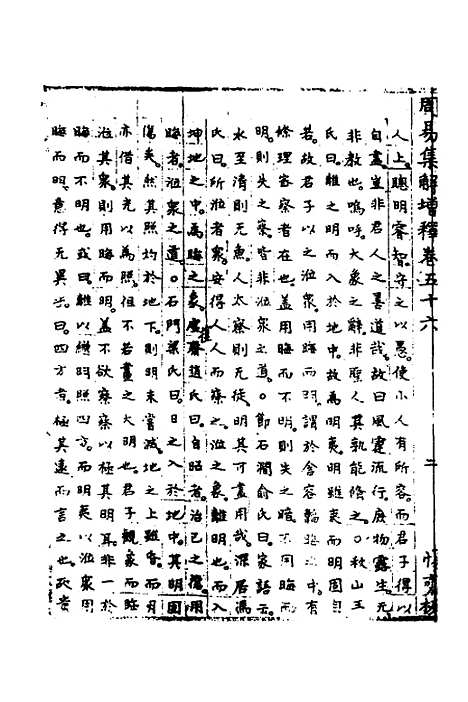 周易集解增釋卷五十六
二
人上。聰明睿智。守之以愚。使小人有所容。而君子得以
自盡。豈非君人之善道哉。故曰風霆流行。庶物露生。无
非教也。嗚呼。大象之辭。非聖人其孰能脩之。○秋山王
氏曰。離之明而入於地中。故為明夷。明雖夷而明固自
若。故君子以之涖衆。用晦而明。謂於含容韜晦之中。有
條理密察者在也。蓋用晦而不明。則失之暗。不同晦而
明。則失之察。皆非涖衆之道。○節石澗俞氏曰。家語云。
水至清則无魚。人太察則无徒。明其可盡用哉。深居馮
氏曰。所涖者衆。安得人人而察之。涖之象。離明也。而入
坤地之中。為晦之象。虛齋趙氏曰。自昭者。治己之德。用
晦者。涖衆之道。○石門梁氏曰。日之入於地中。其明固
傷矣。然其照灼於地下。則明未嘗滅。地之上雖昏。而月
亦借其光以為照。但不若晝之大明也。君子觀象而
涖其衆。則用晦而明。蓋不欲察察以極其明耳。非一於
晦而不明也。或曰。離以繼明照四方。而明夷以涖衆用
晦而明。意得无異乎。曰。四方者。極其遠而言之也。